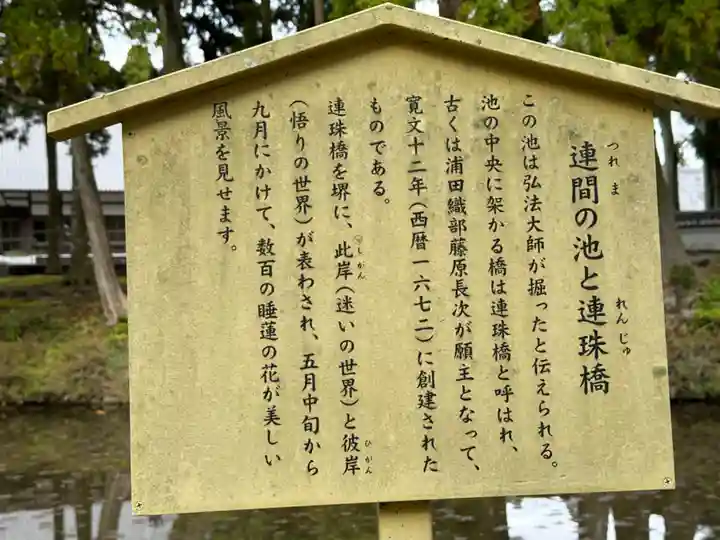 連間の池と連珠橋
つれま
れんじゅ
この池は弘法大師が掘ったと伝えられる。
池の中央に架かる橋は連珠橋と呼ばれ、
古くは浦田織部藤原長次が願主となって、
寛文十二年(西暦一六七二)に創建された
ものである。
連珠橋を堺に、此岸(迷いの世界)と彼岸
しがん
ひがん
(悟りの世界)が表わされ、五月中旬から
九月にかけて、数百の睡蓮の花が美しい
風景を見せます。